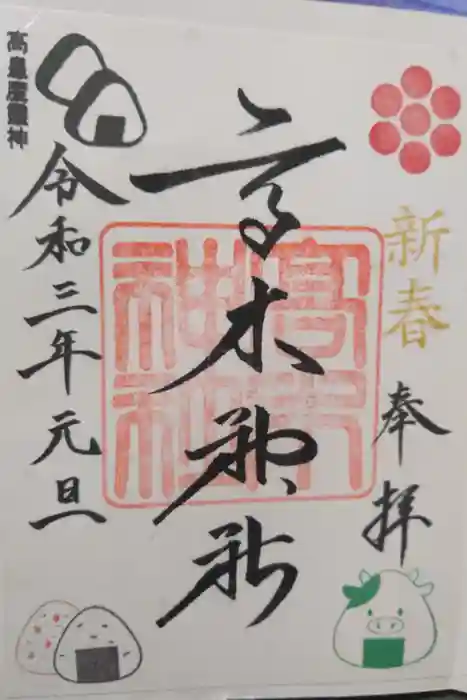 新春
奉拝
高木神社
高木神社
令和三年元旦
高皇産靈神